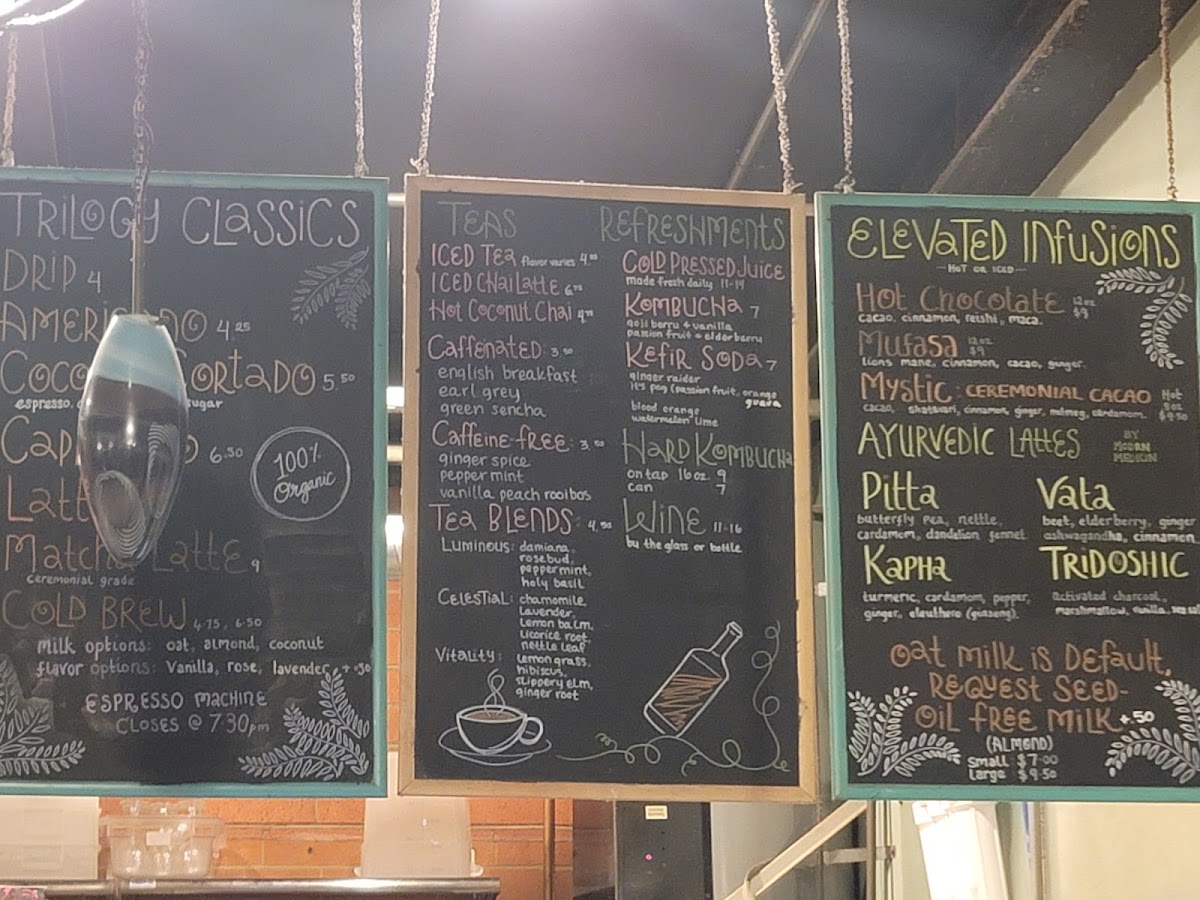 TRILOGY CLASSICS
DRIP 4
4.25
CORTADO 5.50
espresso, sugar
6.50
100% Organic
Matcha Latte 9
ceremonial grade
COLD BREW 4.75, 6.50
milk options: oat, almond, coconut
flavor options: Vanilla, rose, lavender, +.50
ESPRESSO MACHINE
CLOSES @ 7:30pm
TEAS
ICED TEA flavor varies
ICED CHAI LATTE
Hot Coconut Chai
Caffeinated: 3.50
english breakfast
earl grey
green sencha
Caffeine-free: 3.50
ginger spice
peppermint
vanilla peach rooibos
TEA BLENDS: 4.50
Luminous: damiana,
rosebud,
peppermint,
holy basil
CELESTIAL: chamomile,
Lavender,
Lemon balm,
licorice root,
nettle leaf
Vitality: lemongrass,
hibiscus,
slippery elm,
ginger root
REFRESHMENTS
COLD PRESSED JUICE
made fresh daily 11-14
KOMBUCHA 7
goji berry + vanilla
passion fruit + elderberry
KEFIR SODA 7
ginger raider
it's pog (passion fruit, orange
guava
blood orange
watermelon lime
HARD KOMBUCHA
on tap 16oz 9
can 7
WINE 11-16
by the glass or bottle
ELEVATED INFUSIONS
HOT OR ICED
Hot Chocolate 12oz $9
cacao, cinnamon, reishi, maca.
Mufasa 12oz $9
lions mane, cinnamon, cacao, ginger.
Mystic: CEREMONIAL CACAO Hot 8oz $9.50
cacao, shatavari, cinnamon, ginger, nutmeg, cardamom.
AYURVEDIC LATTES BY MODRN MEDICIN
Pitta
butterfly pea, nettle,
cardamom, dandelion fennel
Vata
beet, elderberry, ginger
ashwagandha, cinnamon
KAPHA
turmeric, cardamom, pepper,
ginger, eleuthero (ginseng).
TRIDOSHIC
activated charcoal,
marshmallow, vanilla, sea salt
Oat milk is Default,
REQUEST SEED-
OIL FREE MILK +.50
(ALMOND)
small $7.00
large $9.50